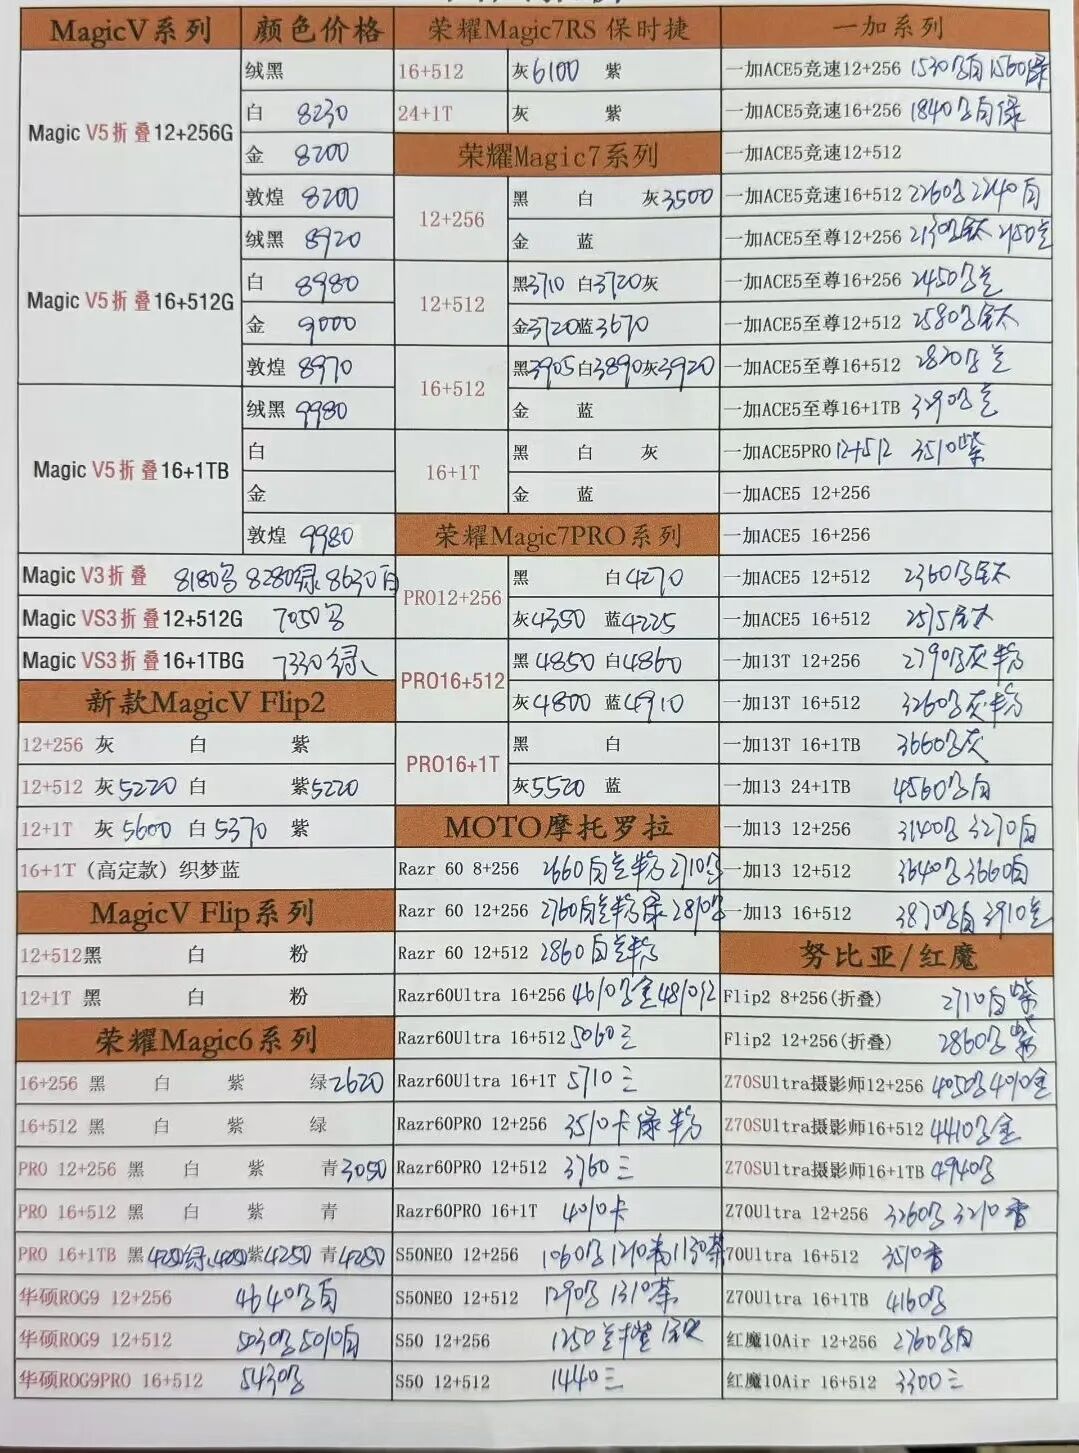 MagicV系列 颜色价格
Magic V5折叠12+256G
绒黑
白 8230
金 8200
敦煌 8200
Magic V5折叠16+512G
绒黑 8920
白 8980
金 9000
敦煌 8970
Magic V5折叠16+1TB
绒黑 9980
白
金
敦煌 9980
Magic V3折叠 8180 8280绿 8630白
Magic VS3折叠12+512G 7050
Magic VS3折叠16+1TBG 7330绿
新款MagicV Flip2
12+256 灰 白 紫
12+512 灰5220 白 紫5220
12+1T 灰 5600 白 5370 紫
16+1T (高定款) 织梦蓝
MagicV Flip系列
12+512黑 白 粉
12+1T 黑 白 粉
荣耀Magic6系列
16+256 黑 白 紫 绿2620
16+512 黑 白 紫 绿
PRO 12+256 黑 白 紫 青3050
PRO 16+512 黑 白 紫 青
PRO 16+1TB 黑 紫4250 青4250
华硕ROG9 12+256 4640 白
华硕ROG9 12+512 5030 5010白
华硕ROG9PRO 16+512 5430
荣耀Magic7RS 保时捷
16+512 灰6100 紫
24+1T 灰 紫
荣耀Magic7系列
12+256
黑 白 灰3500
金 蓝
12+512
黑3710 白3720灰
金3720蓝3670
16+512
黑3905白3890灰3920
金 蓝
16+1T
黑 白 灰
金 蓝
荣耀Magic7PRO系列
PRO12+256
黑 白4270
灰4350 蓝4225
PRO16+512
黑4850 白4860
灰4800 蓝4910
PRO16+1T
黑 白
灰5520 蓝
MOTO摩托罗拉
Razr 60 8+256 2660白兰粉 2710
Razr 60 12+256 2760白兰粉绿 2810
Razr 60 12+512 2860白兰粉
Razr60Ultra 16+256 4610 金 4810红
Razr60Ultra 16+512 5060三
Razr60Ultra 16+1T 5710三
Razr60PRO 12+256 3510卡绿粉
Razr60PRO 12+512 3760三
Razr60PRO 16+1T 4010卡
S50NEO 12+256 1060 1210 1130茶
S50NEO 12+512 1290 1310茶
S50 12+256 1350兰
S50 12+512 1440三
一加系列
一加ACE5竞速12+256 1530 白 1560绿
一加ACE5竞速16+256 1840 白绿
一加ACE5竞速12+512
一加ACE5竞速16+512 2260 2240白
一加ACE5至尊12+256 2130 钛 2150兰
一加ACE5至尊16+256 2450 兰
一加ACE5至尊12+512 2580 钛
一加ACE5至尊16+512 2820 兰
一加ACE5至尊16+1TB 3290 兰
一加ACE5PRO 12+512 3510紫
一加ACE5 12+256
一加ACE5 16+256
一加ACE5 12+512 2360 钛
一加ACE5 16+512 2575钛
一加13T 12+256 2790 灰粉
一加13T 16+512 3260 灰粉
一加13T 16+1TB 3660 灰
一加13 24+1TB 4560 白
一加13 12+256 3140 3270白
一加13 12+512 3640 3660白
一加13 16+512 3870 白 3910兰
努比亚/红魔
Flip2 8+256(折叠) 2710白紫
Flip2 12+256(折叠) 2860 紫
Z70SUltra摄影师12+256 4050 4010金
Z70SUltra摄影师16+512 4410 金
Z70SUltra摄影师16+1TB 4940
Z70Ultra 12+256 3260 3210香
70Ultra 16+512 3510香
Z70Ultra 16+1TB 4160
红魔10Air 12+256 2760 白
红魔10Air 16+512 3300三